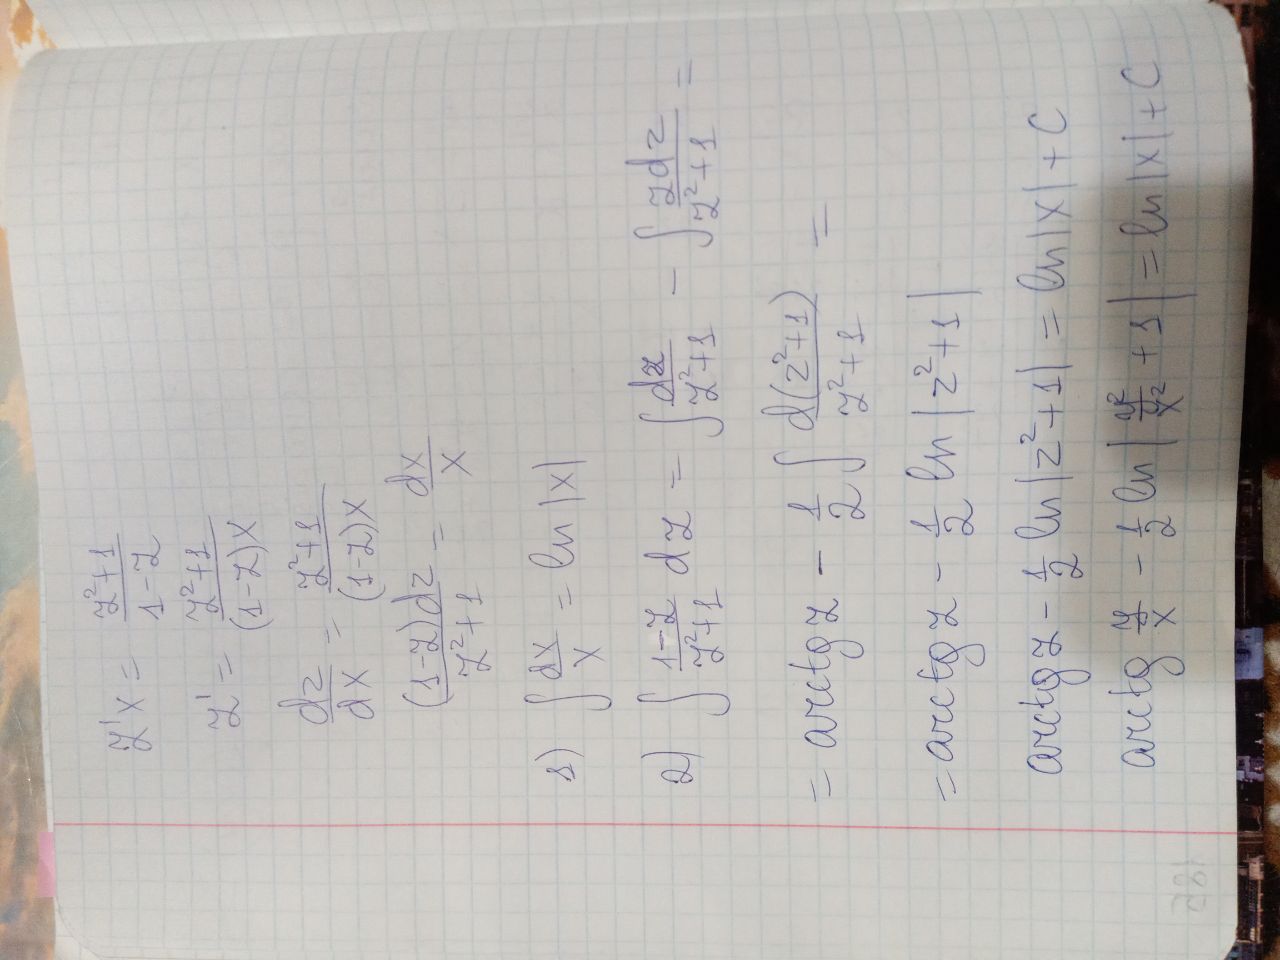 z'x = \frac{z^2+1}{1-z}
z' = \frac{z^2+1}{(1-z)x}
\frac{dz}{dx} = \frac{z^2+1}{(1-z)x}
\frac{(1-z)dz}{z^2+1} = \frac{dx}{x}
1) \int \frac{dx}{x} = ln|x|
2) \int \frac{1-z}{z^2+1} dz = \int \frac{dz}{z^2+1} - \int \frac{zdz}{z^2+1} =
= arctg z - \frac{1}{2} \int \frac{d(z^2+1)}{z^2+1} =
= arctg z - \frac{1}{2} ln|z^2+1|
arctg z - \frac{1}{2} ln|z^2+1| = ln|x| + C
arctg \frac{y}{x} - \frac{1}{2} ln|\frac{y^2}{x^2} + 1| = ln|x| + C